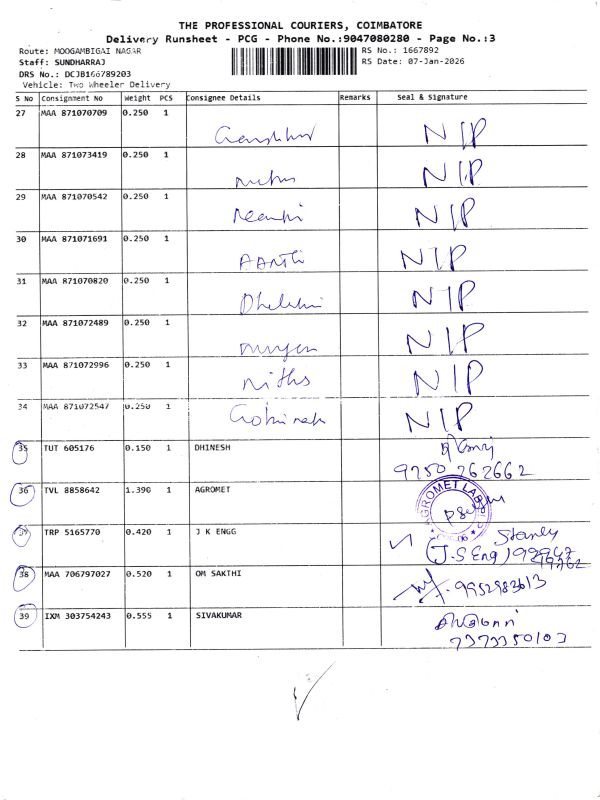 THE PROFESSIONAL COURIERS, COIMBATORE
Delivery Runsheet - PCG - Phone No.:9047080280 - Page No.:3
Route: MOOGAMBIGAI NAGAR
RS No.: 1667892
Staff: SUNDHARRAJ
RS Date: 07-Jan-2026
DRS No.: DCJB166789203
Vehicle: Two Wheeler Delivery
S No Consignment No Weight PCS Consignee Details Remarks Seal & Signature
27 MAA 871070709 0.250 1 NIP
28 MAA 871073419 0.250 1 NIP
29 MAA 871070542 0.250 1 NIP
30 MAA 871071691 0.250 1 AARTHI NIP
31 MAA 871070820 0.250 1 NIP
32 MAA 872072489 0.250 1 NIP
33 MAA 871072996 0.250 1 NIP
34 MAA 871072547 0.250 1 NIP
35 TUT 605176 0.150 1 DHINESH
9250 262662
36 TVL 8858642 1.390 1 AGROMET
AGROMET LAB
37 TRP 5165770 0.420 1 J K ENGG Stanley
(J.S Eng)
38 MAA 706797027 0.520 1 OM SAKTHI 9952983613
39 IXM 303754243 0.555 1 SIVAKUMAR
7373350103